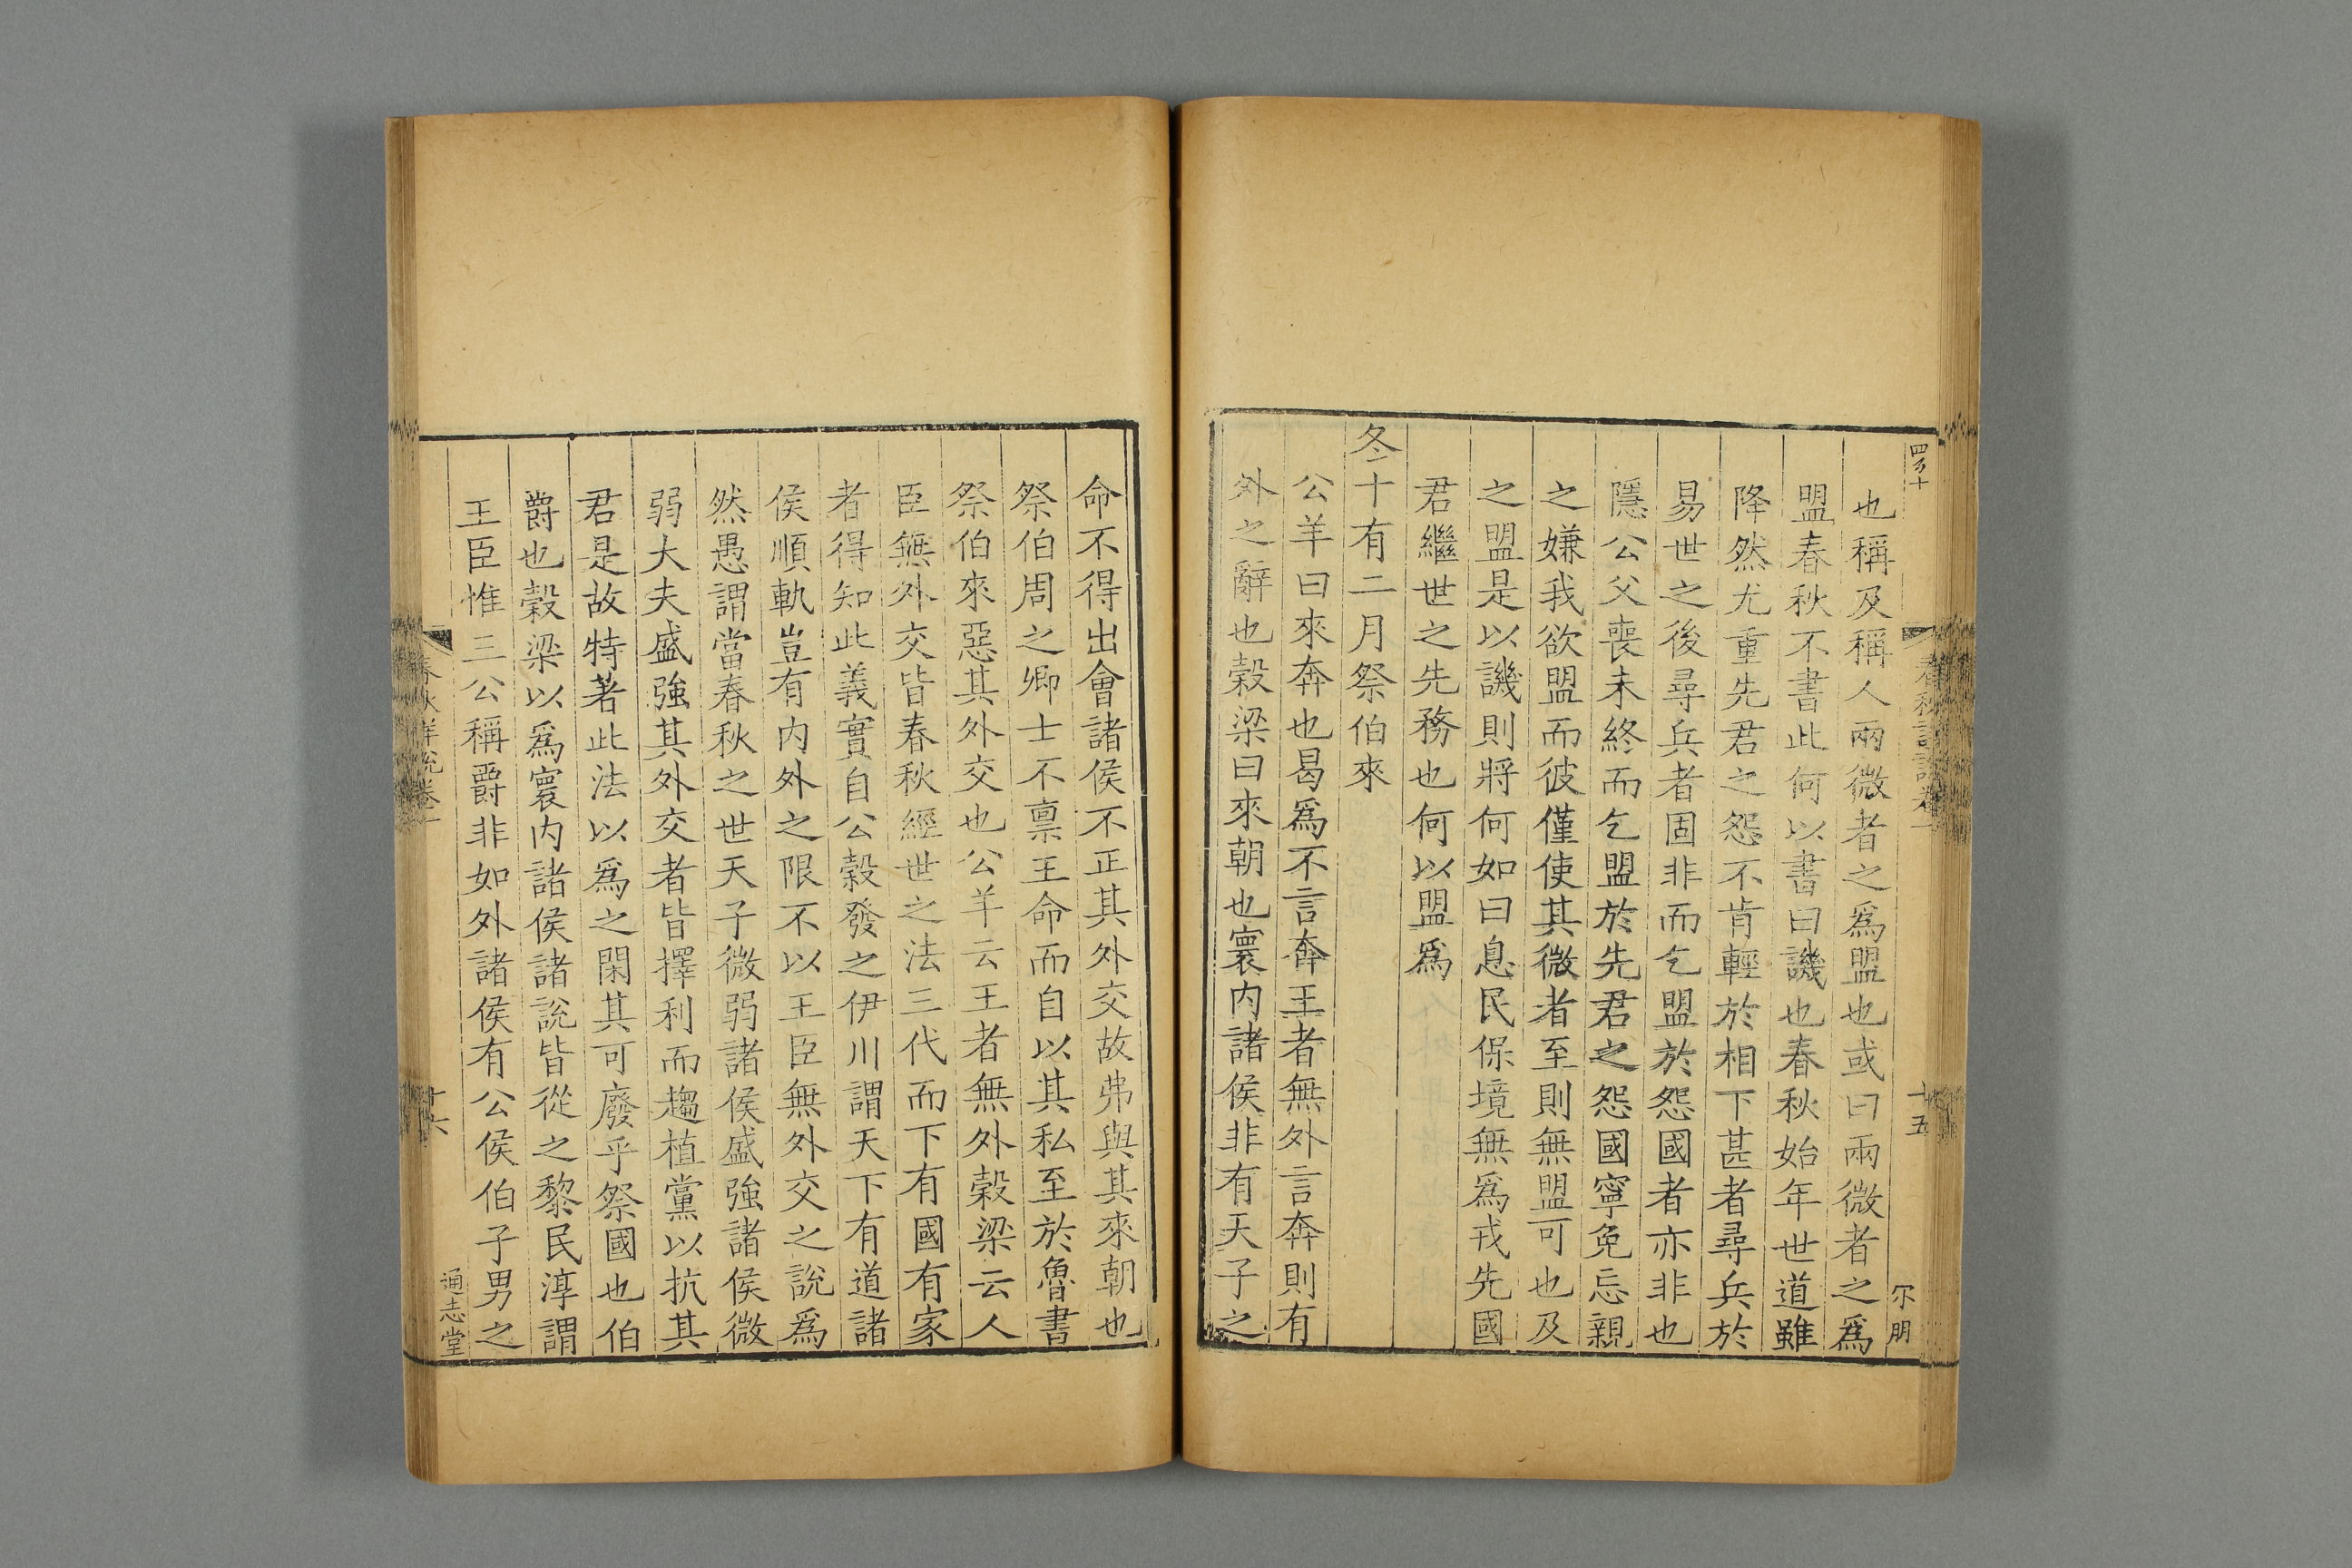 四百十
春秋詳說卷一
十五
尔朋
也稱及稱人兩微者之爲盟也或曰兩微者之爲
盟春秋不書此何以書曰譏也春秋始年世道雖
降然尤重先君之怨不肯輕於相下甚者尋兵於
易世之後尋兵者固非而乞盟於怨國者亦非也
隱公父喪未終而乞盟於先君之怨國寧免忘親
之嫌我欲盟而彼僅使其微者至則無盟可也及
之盟是以譏則將何如曰息民保境無爲戎先國
君繼世之先務也何以盟爲
冬十有二月祭伯來
公羊曰來奔也曷爲不言奔王者無外言奔則有
外之辭也穀梁曰來朝也寰内諸侯非有天子之
命不得出會諸侯不正其外交故弗與其來朝也
祭伯周之卿士不禀王命而自以其私至於魯書
祭伯來惡其外交也公羊云王者無外穀梁云人
臣無外交皆春秋經世之法三代而下有國有家
者得知此義實自公穀發之伊川謂天下有道諸
侯順軌豈有内外之限不以王臣無外交之說爲
然愚謂當春秋之世天子微弱諸侯盛強諸侯微
弱大夫盛強其外交者皆擇利而趨植黨以抗其
君是故特著此法以爲之閑其可廢乎祭國也伯
爵也穀梁以爲寰内諸侯諸說皆從之黎民淳謂
王臣惟三公稱爵非如外諸侯有公侯伯子男之
春秋詳說卷一
十六
通志堂